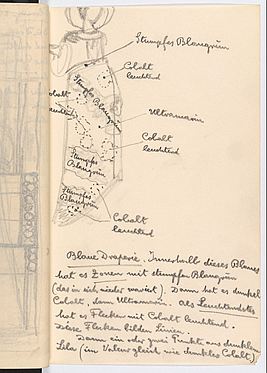 Stumpfes Blaugrün
Cobalt
leuchtend
Cobalt
leuchtend
Stumpfes Blaugrün
Ultramarin
Cobalt
leuchtend
Stumpfes
Blaugrün
Stumpfes
Blaugrün
Cobalt
leuchtend
Blaue Draperie. Innerhalb dieses Blaues
hat es Zonen mit stumpfem Blaugrün
(das in sich wieder variert). Dann hat es dunkel
Cobalt, dann Ultramarin. Als Leuchtendstes
hat es Flecken mit Cobalt leuchtend.
Diese Flecken bilden Linien.
Dann ein oder zwei Punkte aus dunklem
Lila (im Valeur gleich wie dunkles Cobalt.)